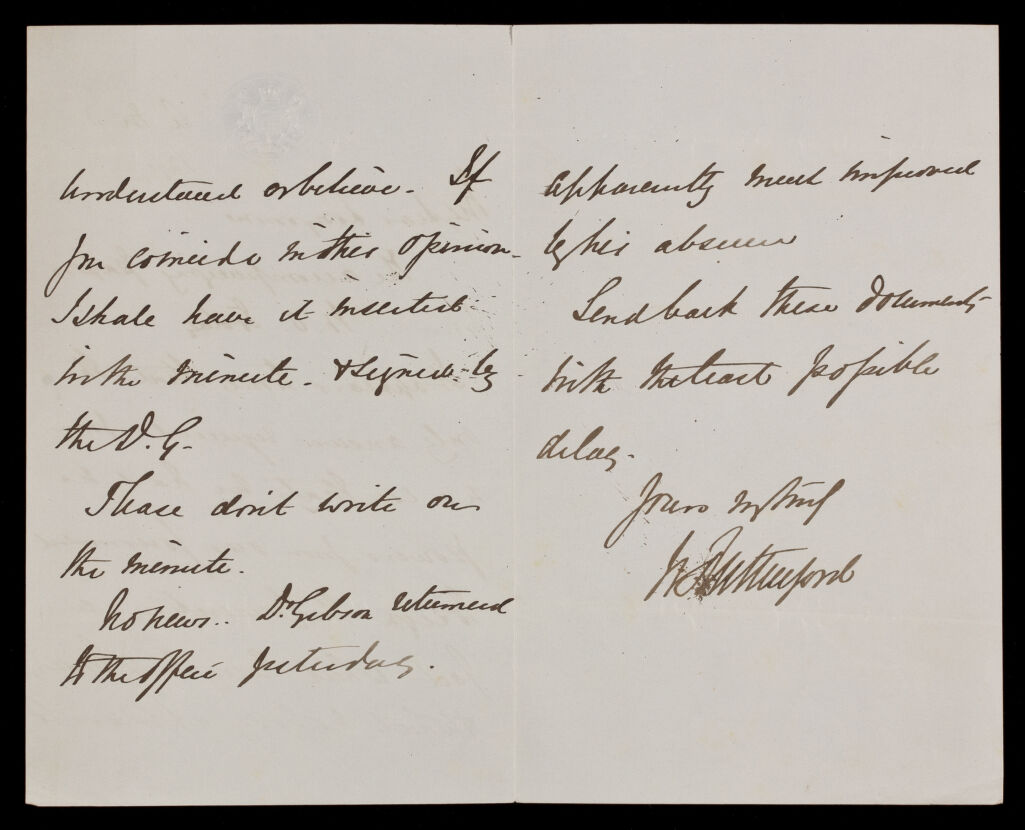 understand or believe. If
you coincide in this opinion.
I shall have it inserted
in the minute. & signed by
the D. G.
Please don't write on
the minute.
No news.. Dr. Gibson returned
to the office yesterday.
apparently much improved
by his absence
Send back these documents
with the least possible
delay.
Yours very truly
W. Rutherford